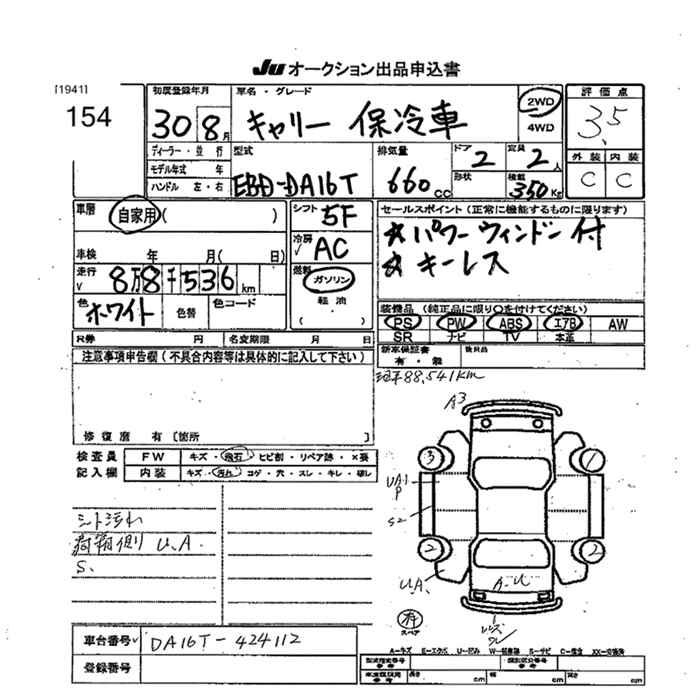 JU オークション出品申込書
[1941]
154
初度登録年月
30 8月
車名・グレード
キャリー 保冷車
2WD
4WD
評価点
3.5
ディーラー・並行
モデル年式 年
ハンドル 左・右
型式
EBD-DA16T
排気量
660cc
ドア
2
定員
2人
形状
積載
350Kg
外装 内装
C C
車歴
自家用( )
シフト
5F
車検 年 月( 日)
冷房
AC
走行
8万8千536km
燃料
ガソリン
軽油
( )
色
ホワイト
色替
色コード
セールスポイント(正常に機能するものに限ります)
☆パワーウィンドー付
☆キーレス
装備品(純正品に限り○を付けてください)
PS PW ABS エアB AW
SR ナビ TV 本革
R券 円 名変期限 月 日
新車保証書
有・無
後日品
注意事項申告欄(不具合内容等は具体的に記入して下さい)
88,541km
修復歴 有〔箇所 〕
検査員
記入欄
FW キズ・飛石・ヒビ割・リペア跡・×要
内装 キズ・汚れ・コゲ・穴・スレ・キレ・破レ
シート汚れ
荷箱側り U.A.
S.
A3
3
1
UA1
P
S2
2
2
U.A.
A-U
スペア
車台番号
DA16T-424112
登録番号
A-キズ E-エクボ U-凹み W-補修跡 S-サビ C-腐食 XX-交換済
型式指定番号
類別区分番号
長さ cm 幅 cm 高さ cm